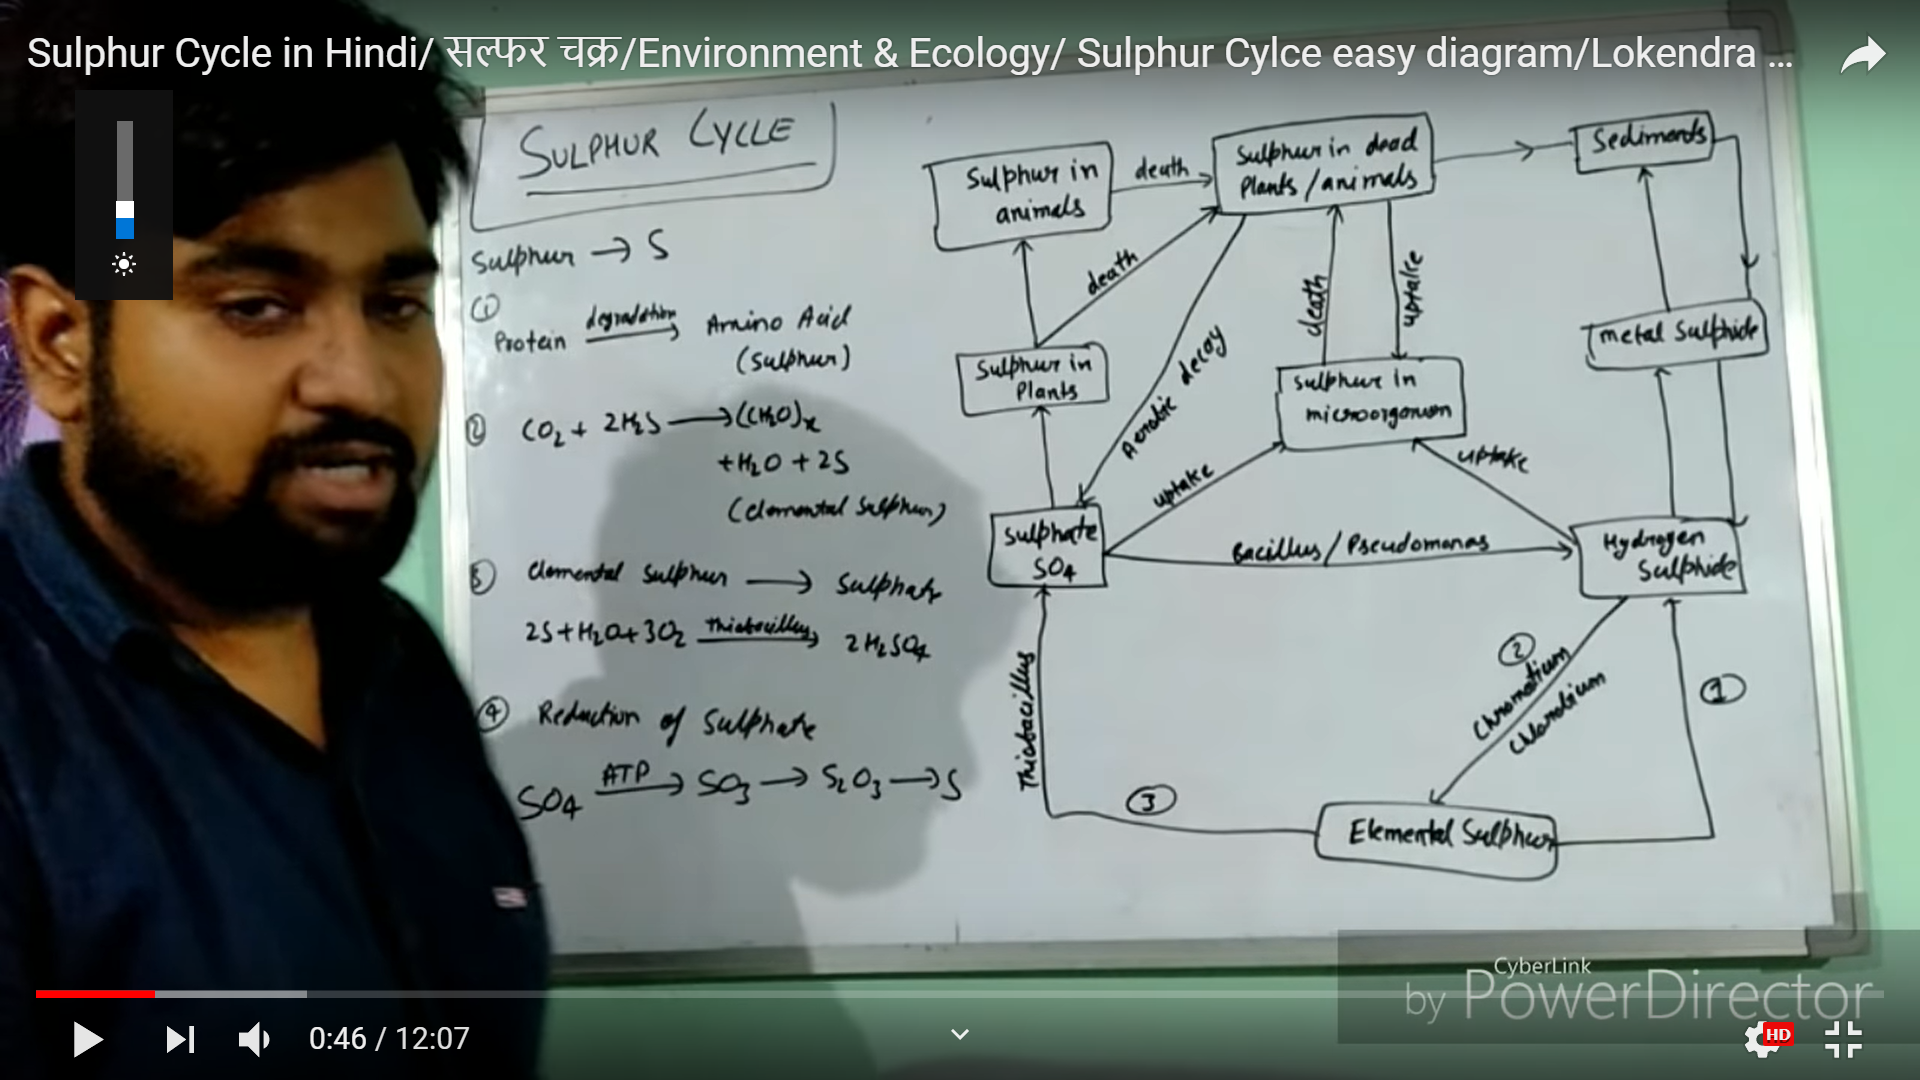 Sulphur Cycle in Hindi/ सल्फर चक्र/Environment & Ecology/ Sulphur Cylce easy diagram/Lokendra ...
SULPHUR CYCLE
Sulphur → S
①
Protein degradation → Amino Acid
(Sulphur)
② CO2 + 2H2S → (CH2O)x
+ H2O + 2S
(elemental Sulphur)
③ elemental Sulphur → Sulphate
2S + H2O + 3O2 Thiobacillus → 2H2SO4
④ Reduction of Sulphate
SO4 ATP → SO3 → S2O3 → S
Sulphur in
animals
death
Sulphur in dead
Plants / animals
Sediments
death
death
uptake
Sulphur in
Plants
Aerobic decay
Sulphur in
microorganism
metal Sulphide
uptake
uptake
Sulphate
SO4
Bacillus / Pseudomonas
Hydrogen
Sulphide
Thiobacillus
②
Chromatium
Chlorobium
①
③
Elemental Sulphur
CyberLink
by PowerDirector
0:46 / 12:07
HD